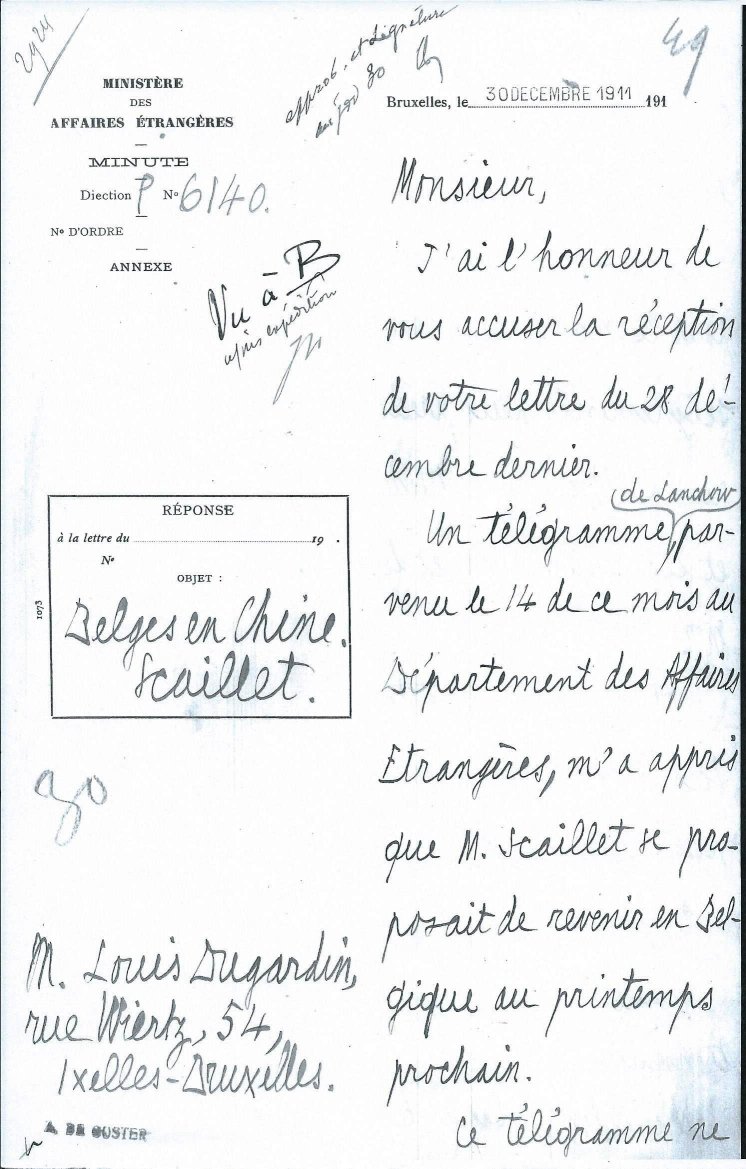 2924
49
approb. et signature
MINISTÈRE
DES
AFFAIRES ÉTRANGÈRES
MINUTE
Diection P No 6140.
No D'ORDRE
ANNEXE
Bruxelles, le 30 DECEMBRE 1911 191
Vu à B
après expédition
RÉPONSE
à la lettre du 19 .
No
OBJET :
Belges en Chine.
Scaillet.
1073
30
M. Louis Dugardin,
rue Wiertz, 54,
Ixelles-Bruxelles.
A. DE CUSTER
Monsieur,
J'ai l'honneur de
vous accuser la réception
de votre lettre du 28 dé-
cembre dernier.
(de Lanchow)
Un télégramme, par-
venu le 14 de ce mois au
Département des Affaires
Etrangères, m'a appris
que M. Scaillet se pro-
posait de revenir en Bel-
gique au printemps
prochain.
Ce télégramme ne